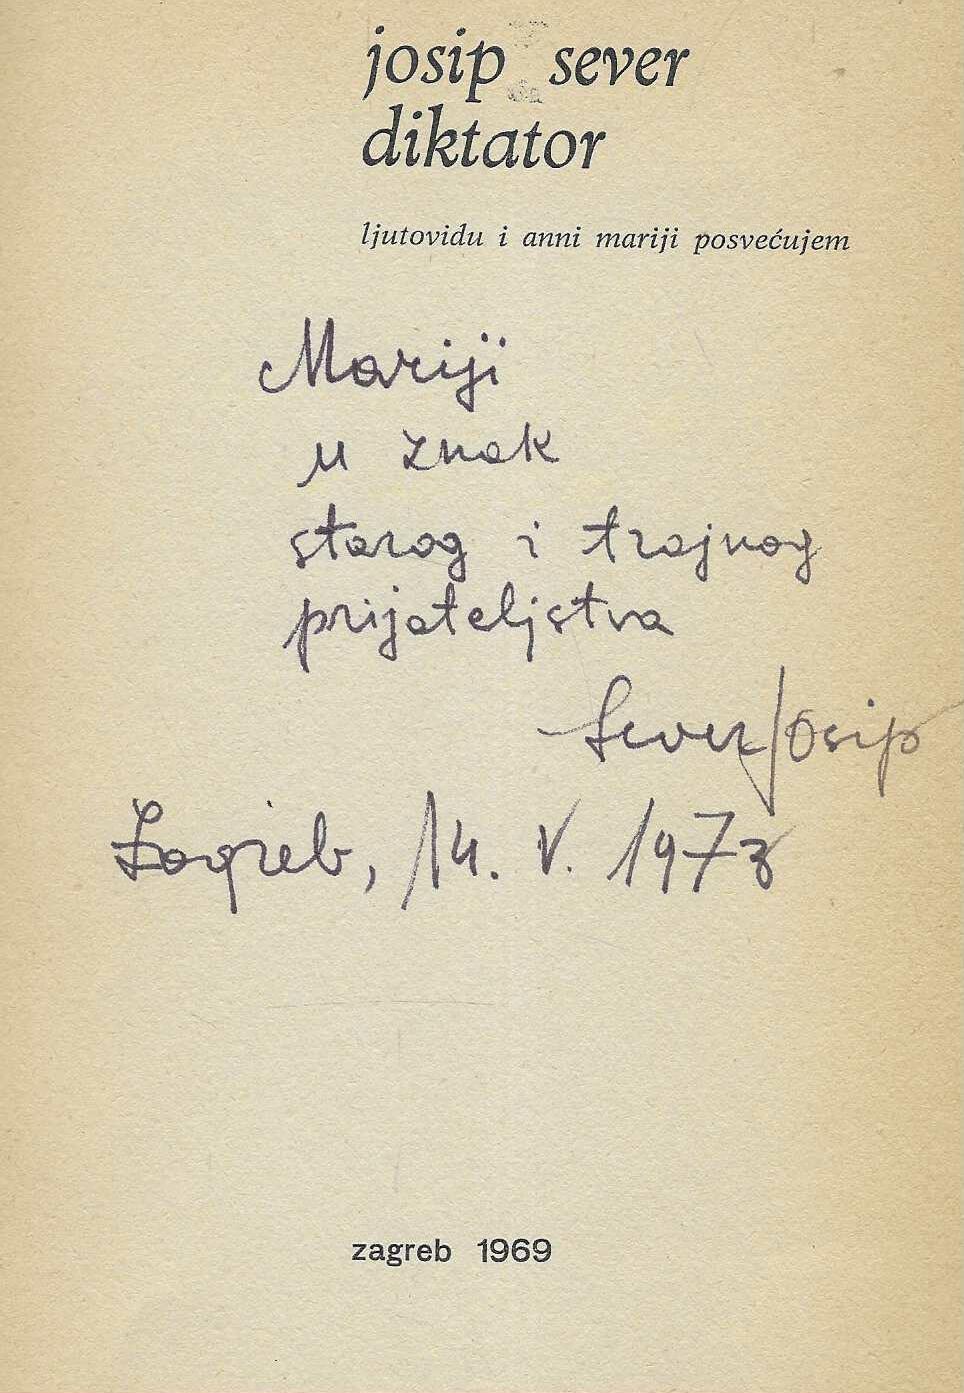 josip sever
diktator
ljutovidu i anni mariji posvećujem
Mariji
u znak
starog i trajnog
prijateljstva
Sever Josip
Zagreb, 14. V. 1973
zagreb 1969